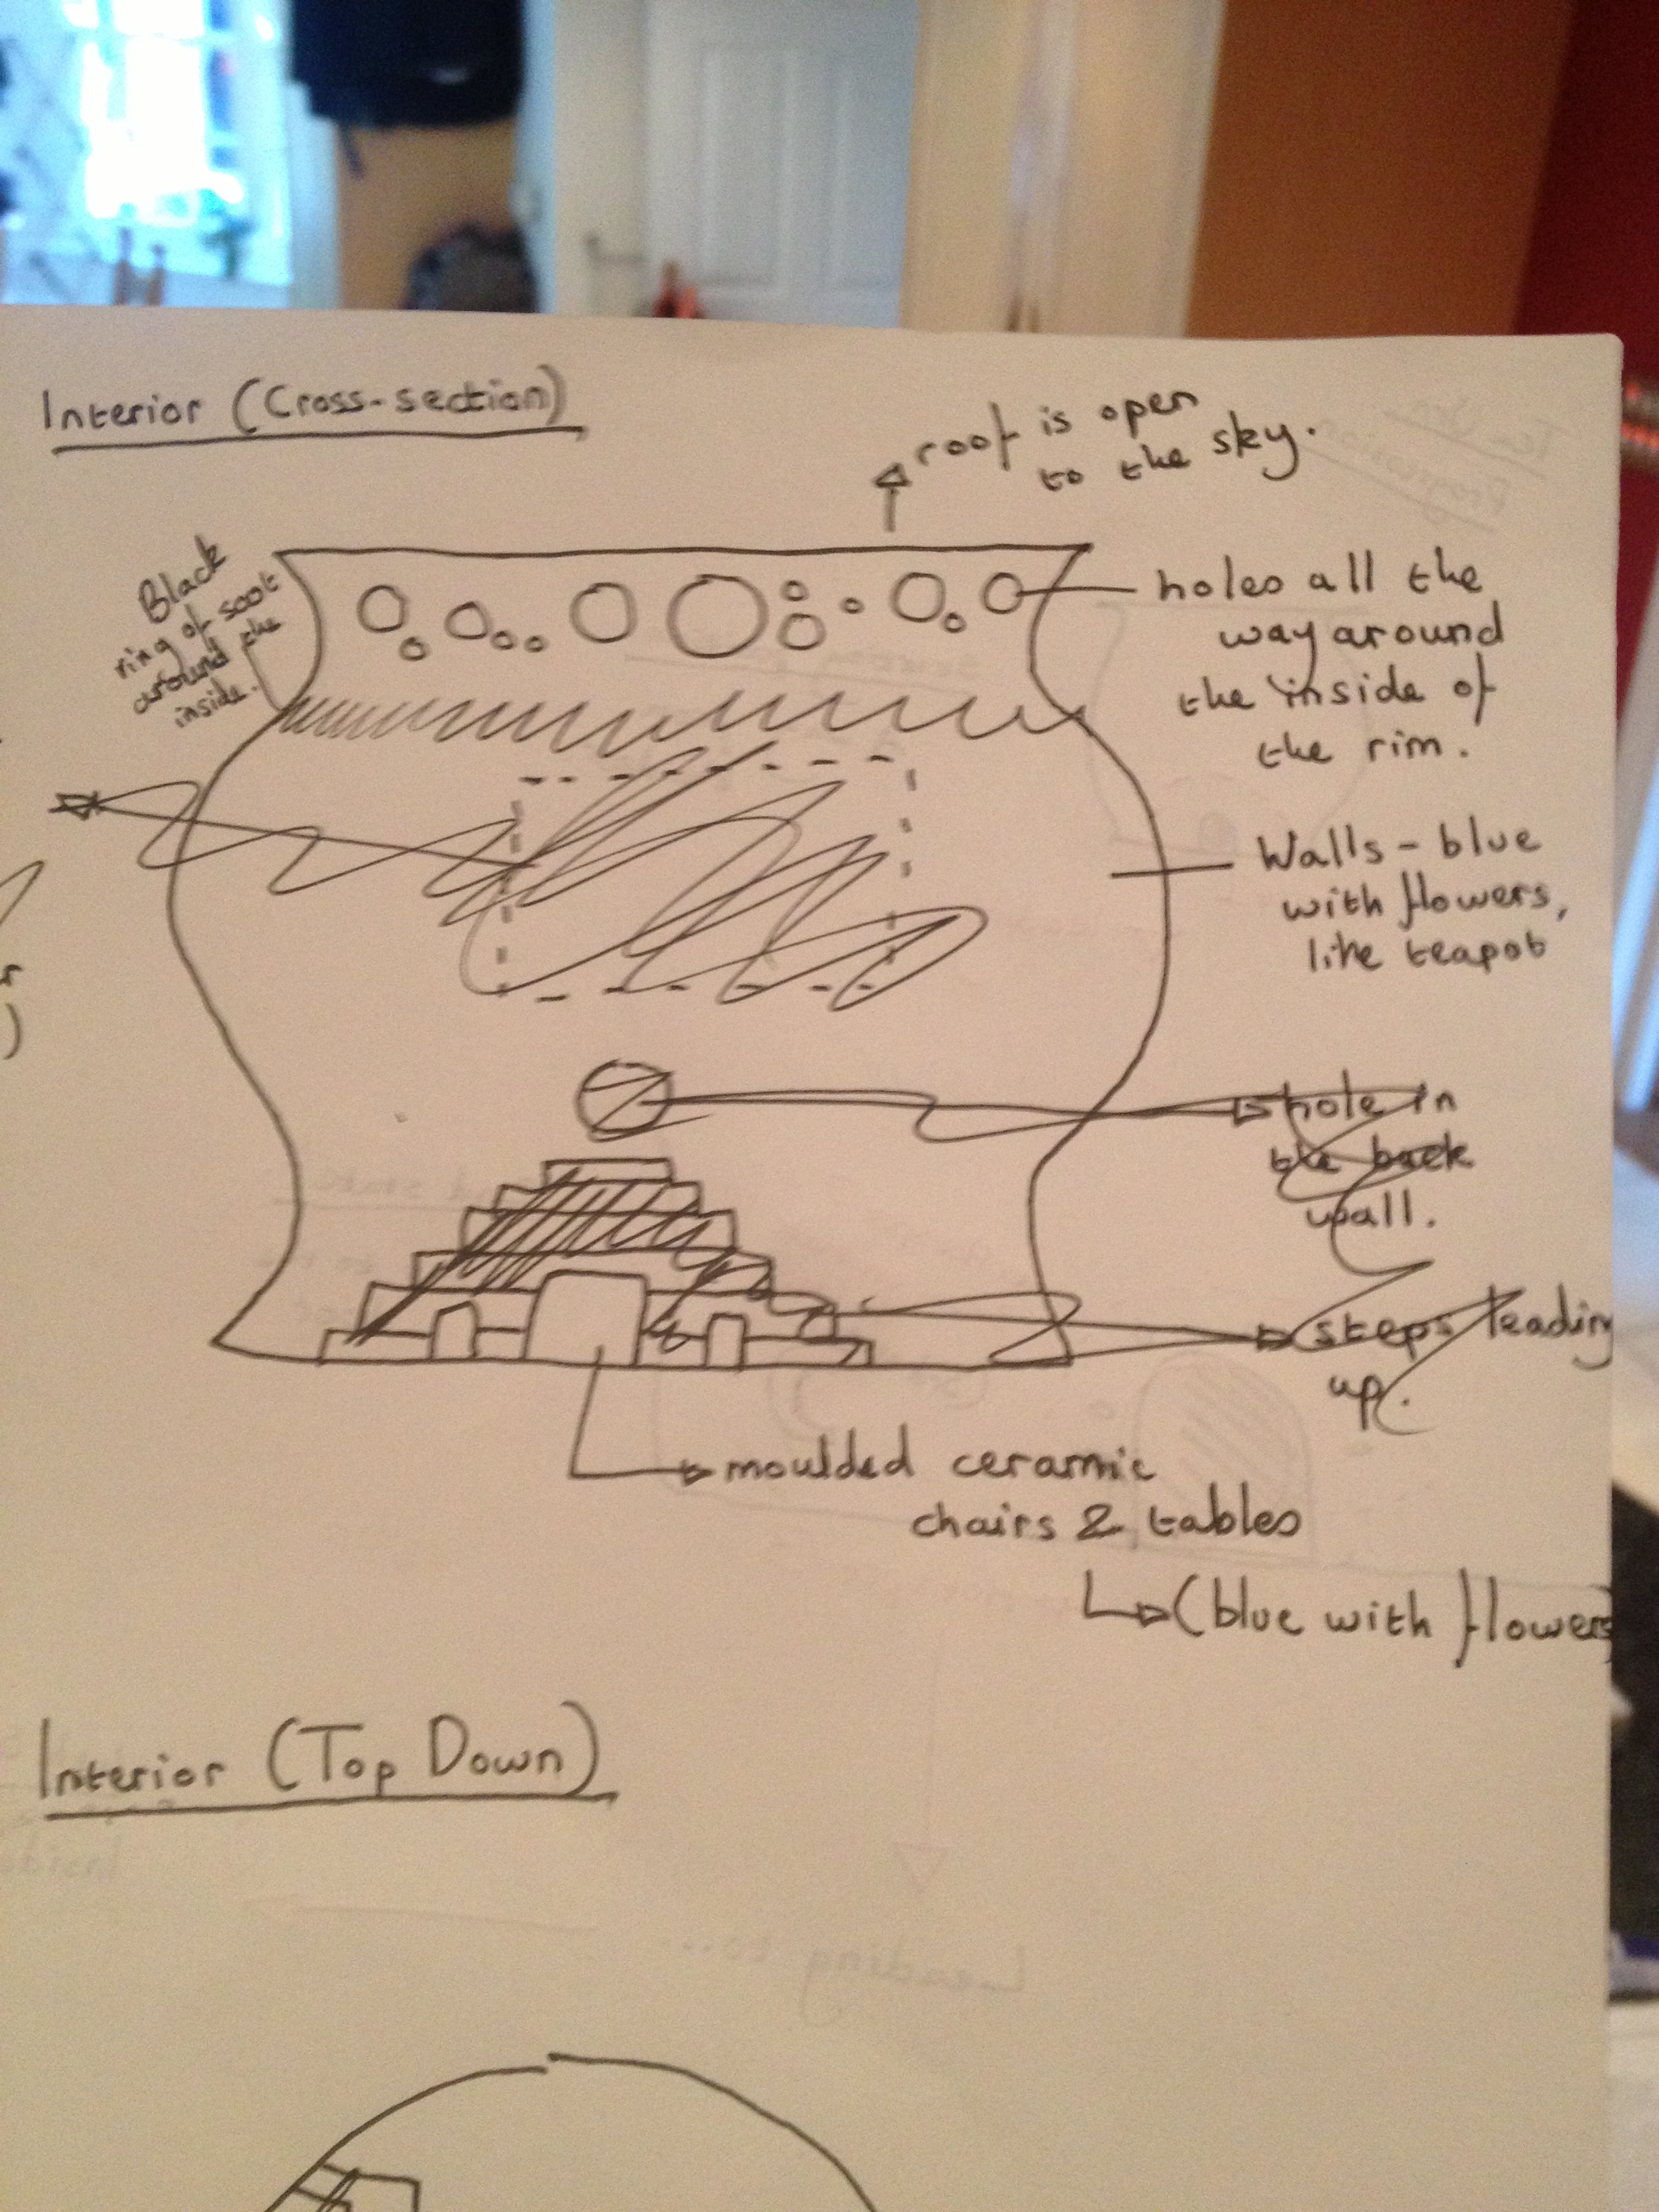 Interior (Cross-section)
roof is open
to the sky.
Black
ring of soot
around the
inside.
holes all the
way around
the inside of
the rim.
Walls - blue
with flowers,
like teapot
hole in
the back
wall.
steps leading
up.
moulded ceramic
chairs & tables
(blue with flowers
Interior (Top Down)
Leading to...